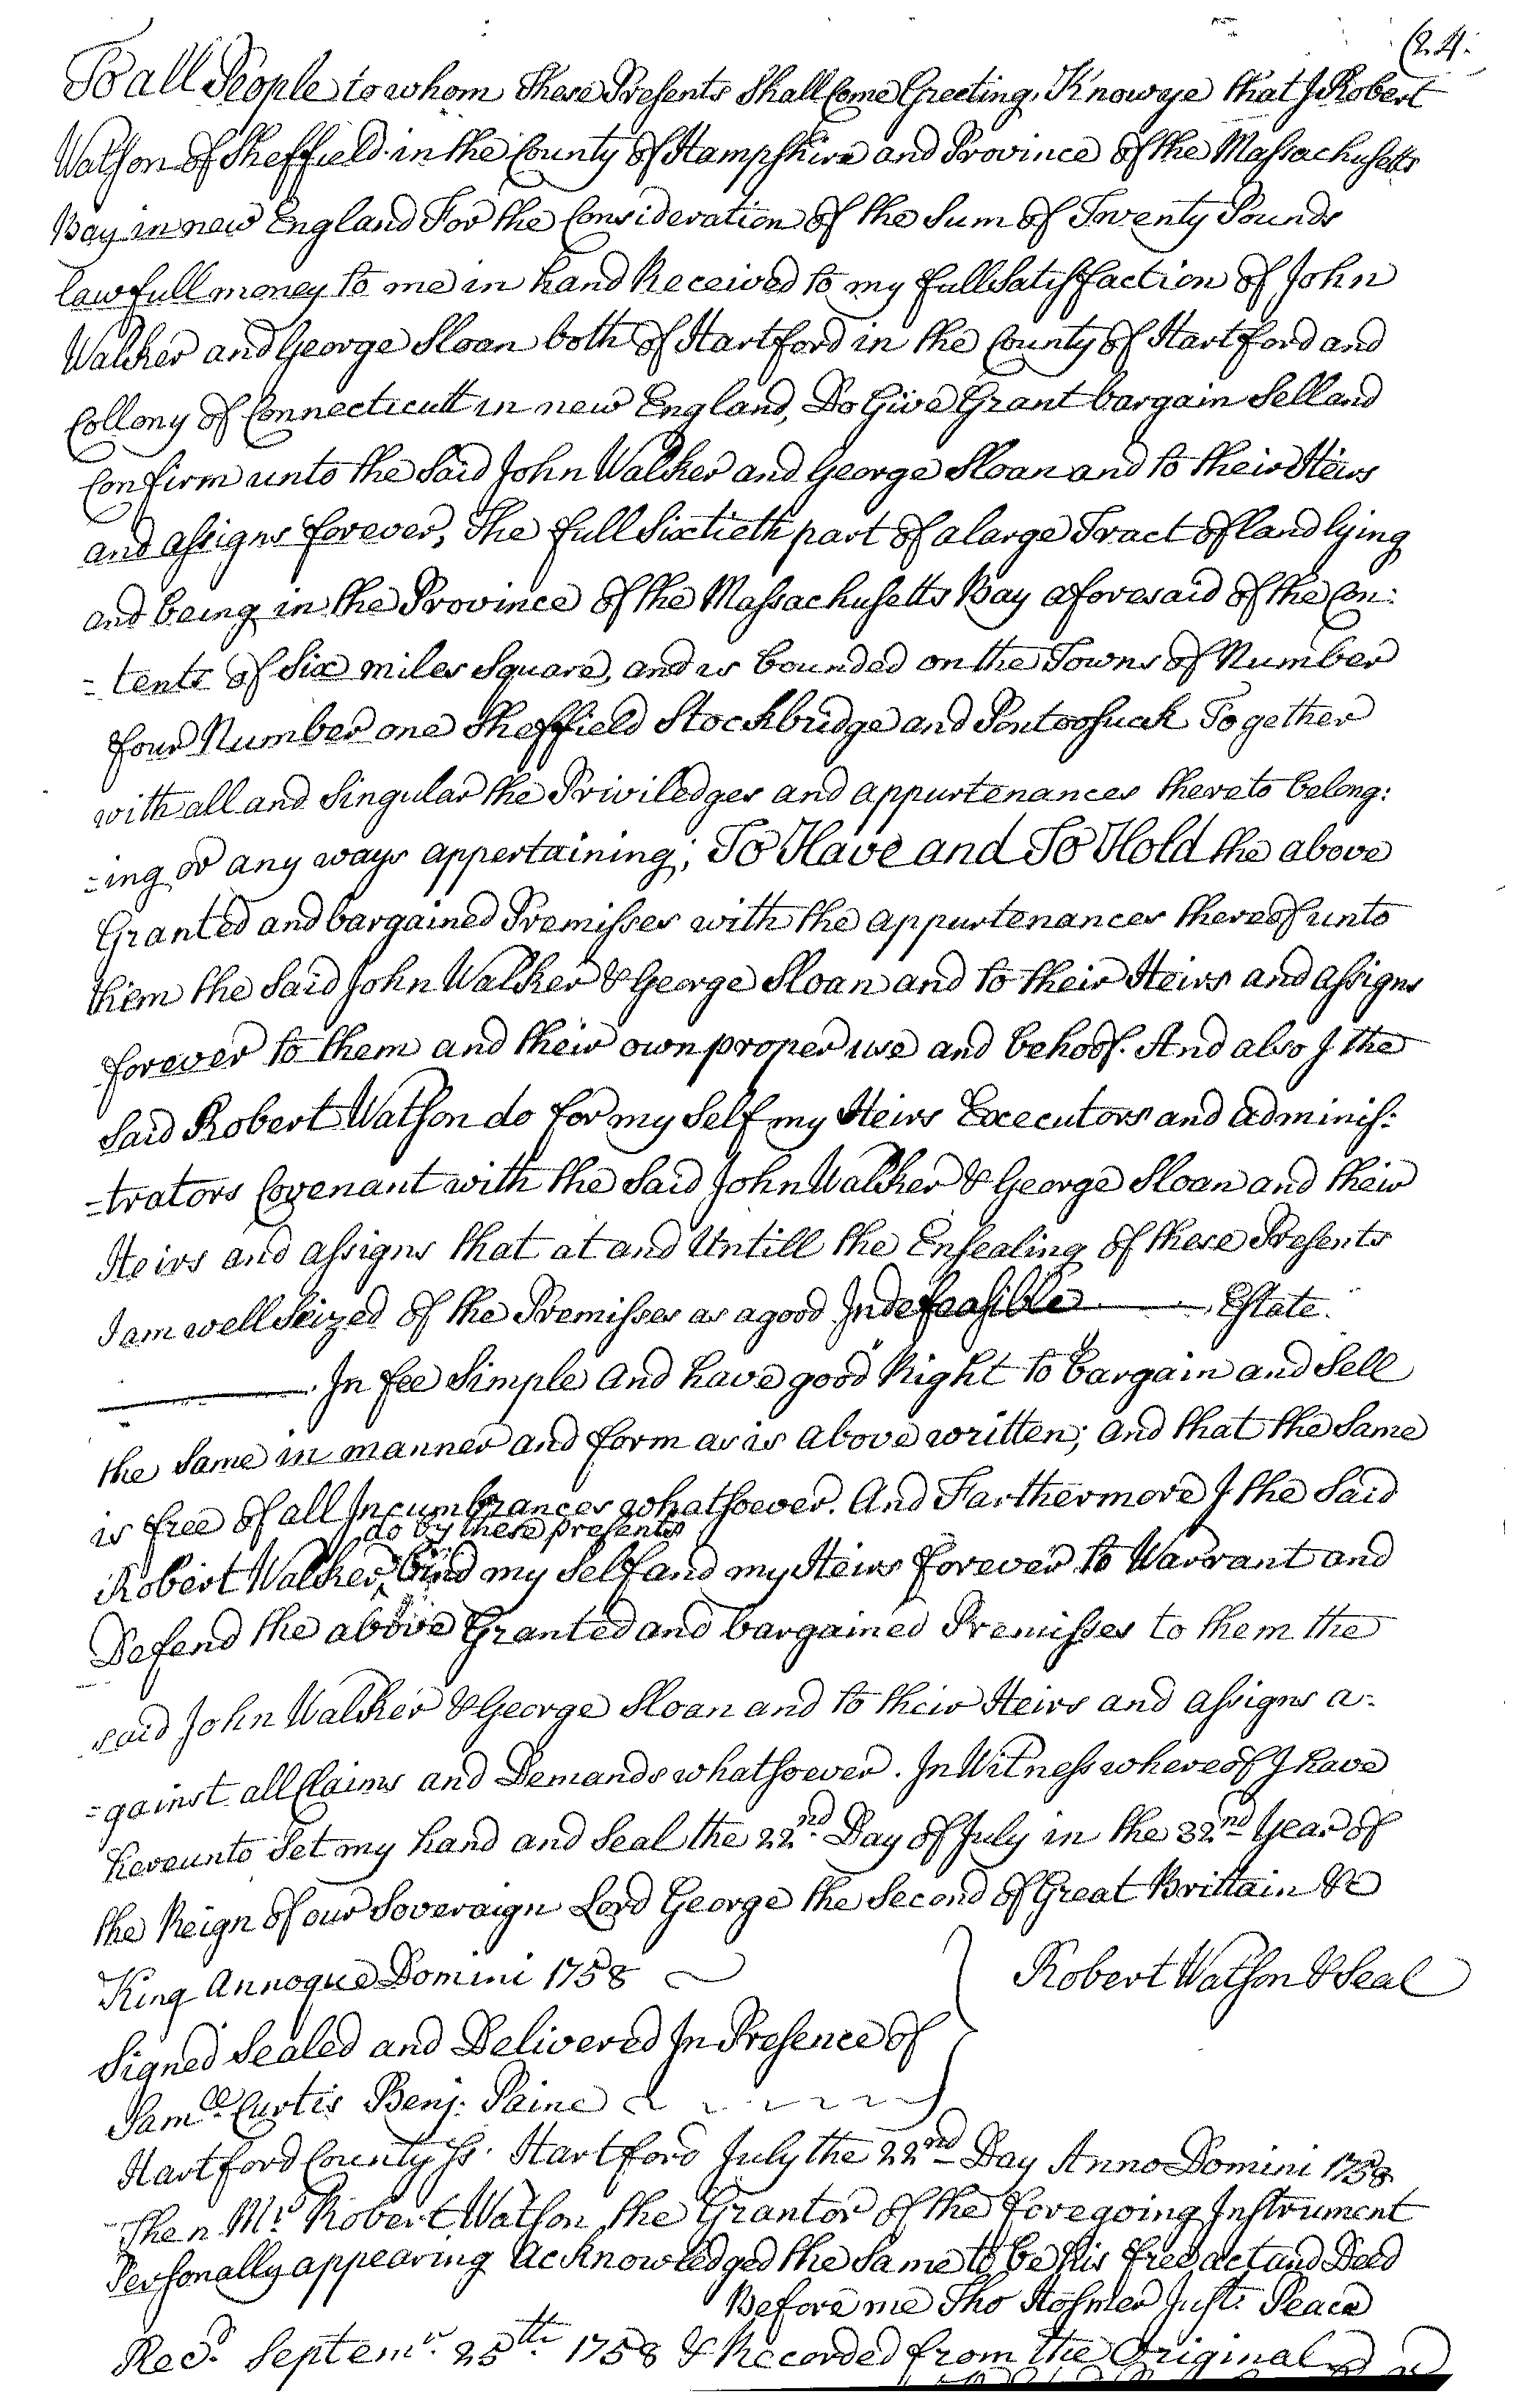 (24.
To all People to whom These Presents Shall Come Greeting, Know ye that I Robert
Watson of Sheffield in the County of Hampshire and Province of the Massachusetts
Bay in new England For the Consideration of the Sum of Twenty Pounds
lawfull money to me in hand Received to my full Satisfaction of John
Walker and George Sloan both of Hartford in the County of Hartford and
Collony of Connecticutt in new England, Do Give Grant bargain Sell and
Confirm unto the Said John Walker and George Sloan and to their Heirs
and assigns forever, The full Sixtieth part of a large Tract of land lying
and being in the Province of the Massachusetts Bay aforesaid of the Con:
=tents of Six miles Square, and is bounded on the Towns of Number
four Number one Sheffield Stockbridge and Pontoosuck Together
with all and Singular the Priviledges and appurtenances thereto belong:
=ing or any ways appertaining; To Have and To Hold the above
Granted and bargained Premisses with the appurtenances thereof unto
them the Said John Walker & George Sloan and to their Heirs and assigns
forever to them and their own proper use and behoof. And also I the
Said Robert Watson do for my Self my Heirs Executors and adminis:
=trators Covenant with the Said John Walker & George Sloan and their
Heirs and assigns that at and Untill the Ensealing of these Presents
I am well Seized of the Premisses as a good Indefeasible Estate.
In fee Simple and have good Right to bargain and Sell
the Same in manner and form as is above written; and that the Same
is free of all Incumbrances whatsoever. And Farthermore I the Said
do by these presents
Robert Walker, bind my Self and my Heirs forever to Warrant and
Defend the above Granted and bargained Premisses to them the
said John Walker & George Sloan and to their Heirs and assigns a=
=gainst all Claims and Demands whatsoever. In Witness whereof I have
hereunto Set my hand and Seal the 22nd Day of July in the 32nd Year of
the Reign of our Soveraign Lord George the Second of Great Brittain &c
King Annoque Domini 1758
Robert Watson & Seal
Signed Sealed and Delivered In Presence of
Samll Curtis Benj: Paine
Hartford County Ss. Hartford July the 22nd Day Anno Domini 1758
Then Mr Robert Watson the Grantor of the foregoing Instrument
Personally appearing Acknowledged the Same to be his free act and Deed
Before me Tho Hosmer Just: Peace
Recd. Septemr. 25th. 1758 & Recorded from the Original